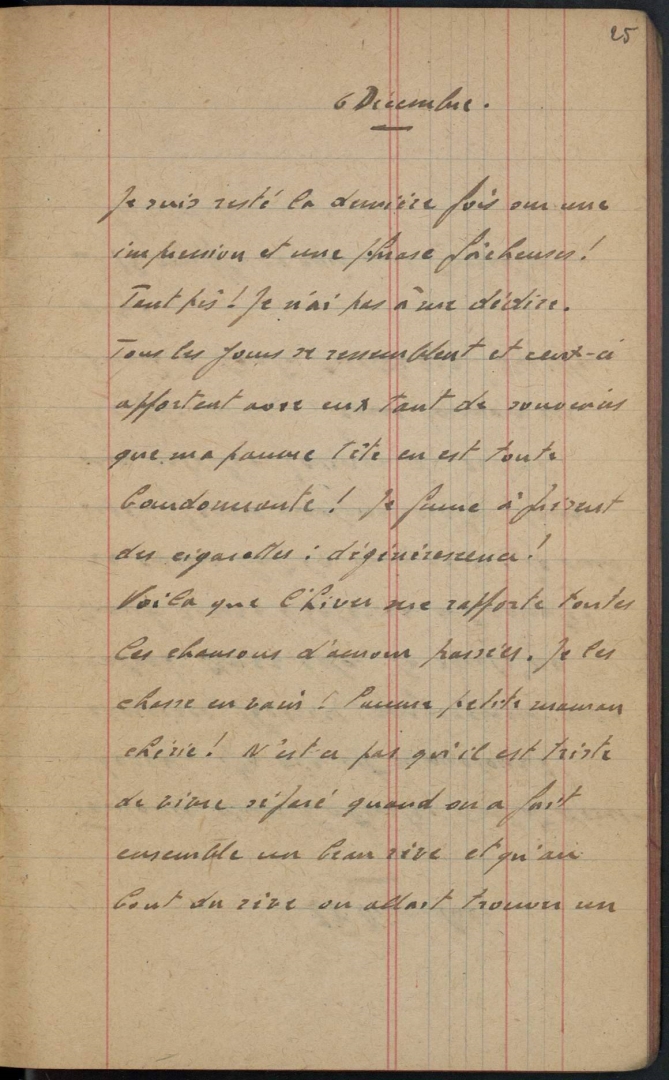 25
6 Décembre.
Je suis resté la dernière fois sur une
impression et une phrase fâcheuses!
Tant pis! Je n'ai pas à me dédire.
Tous les jours se ressemblent et ceux-ci
apportent avec eux tant de souvenirs
que ma pauvre tête en est toute
bourdonnante! Je fume à présent
des cigarettes: dégénérescence!
Voilà que l'hiver me rapporte toutes
les chansons d'amour passées. Je les
chasse en vain! Pauvre petite maman
chérie! N'est ce pas qu'il est triste
de vivre séparé quand on a fait
ensemble un beau rêve et qu'au
bout du rêve on allait trouver un